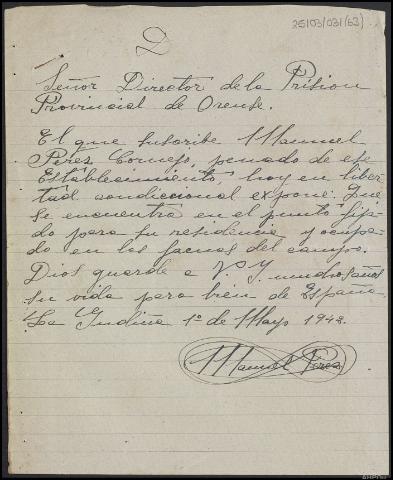 25/03/031/62)
D
Señor Director de la Prision
Provincial de Orense.
El que suscribe Manuel
Perez Cornejo, penado de ese
Establecimiento, hoy en liber
tad condiccional expone: Que
se encuentra en el punto fija
do para su residencia y ocupa
do en las faenas del campo.
Dios guarde a V. muchos años
su vida para bien de España.
La Gudiña 1º de Mayo 1942.
Manuel Perez